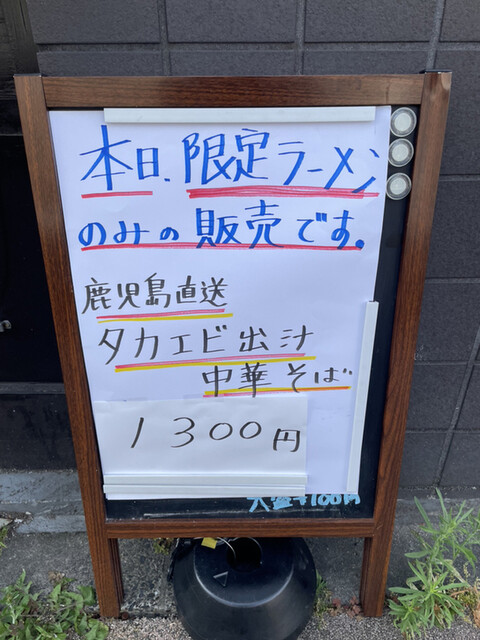 本日、限定ラーメン
のみの販売です。
鹿児島直送
タカエビ出汁
中華そば
1300円
大盛￥100円